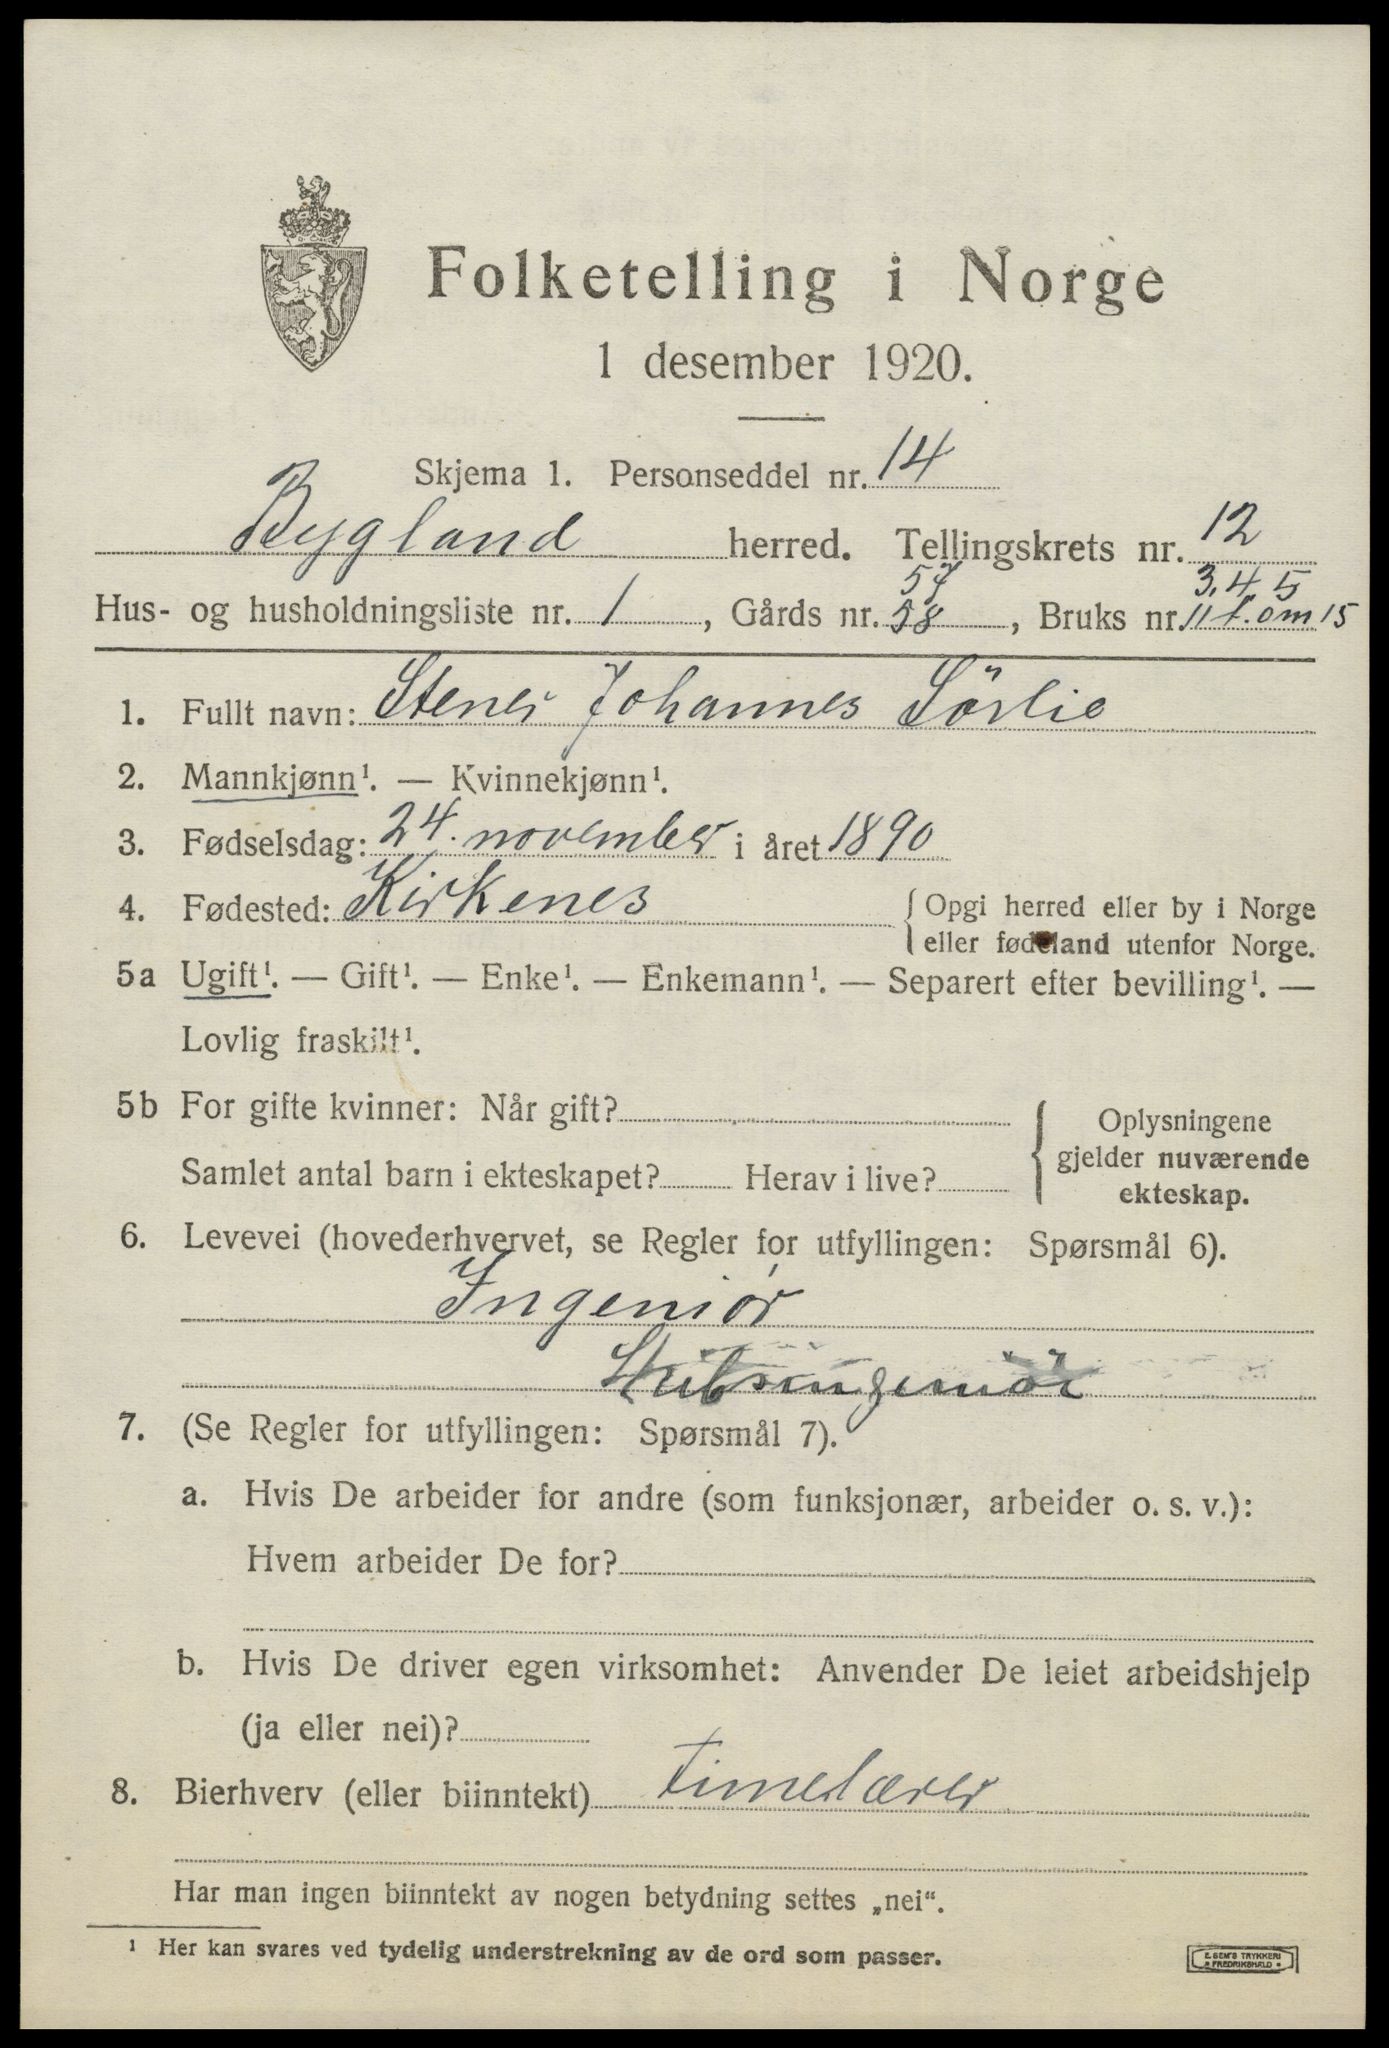 Folketelling i Norge
1 desember 1920.
Skjema 1. Personseddel nr. 14
Bygland herred. Tellingskrets nr. 12
57 3, 4, 5
Hus- og husholdningsliste nr. 1, Gårds nr. 58, Bruks nr. 11 t. om 15
1. Fullt navn: Stener Johannes Sörlie
2. Mannkjønn¹. — Kvinnekjønn¹.
3. Fødselsdag: 24. november i året 1890
4. Fødested: Kirkenes
{ Opgi herred eller by i Norge
eller fødeland utenfor Norge.
5a Ugift¹. — Gift¹. — Enke¹. — Enkemann¹. — Separert efter bevilling¹. —
Lovlig fraskilt¹.
5b For gifte kvinner: Når gift?
Samlet antal barn i ekteskapet? Herav i live?
{ Oplysningene
gjelder nuværende
ekteskap.
6. Levevei (hovederhvervet, se Regler for utfyllingen: Spørsmål 6).
Ingeniør
7. (Se Regler for utfyllingen: Spørsmål 7).
a. Hvis De arbeider for andre (som funksjonær, arbeider o. s. v.):
Hvem arbeider De for?
b. Hvis De driver egen virksomhet: Anvender De leiet arbeidshjelp
(ja eller nei)?
8. Bierhverv (eller biinntekt) Timelærer
Har man ingen biinntekt av nogen betydning settes „nei“.
¹ Her kan svares ved tydelig understrekning av de ord som passer.
E. SEM'S TRYKKERI
FREDRIKSHALD